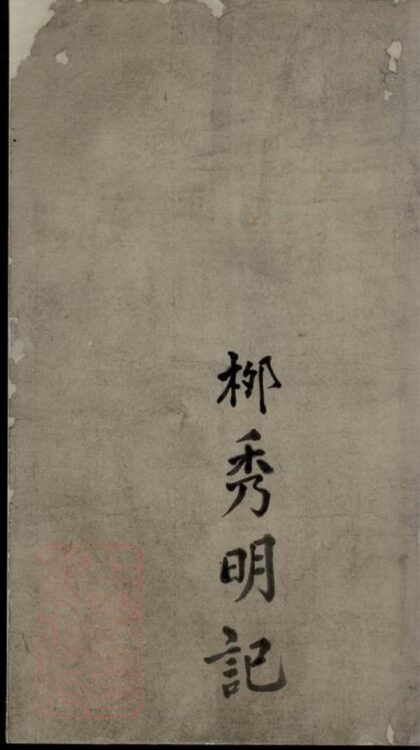 柳秀明記